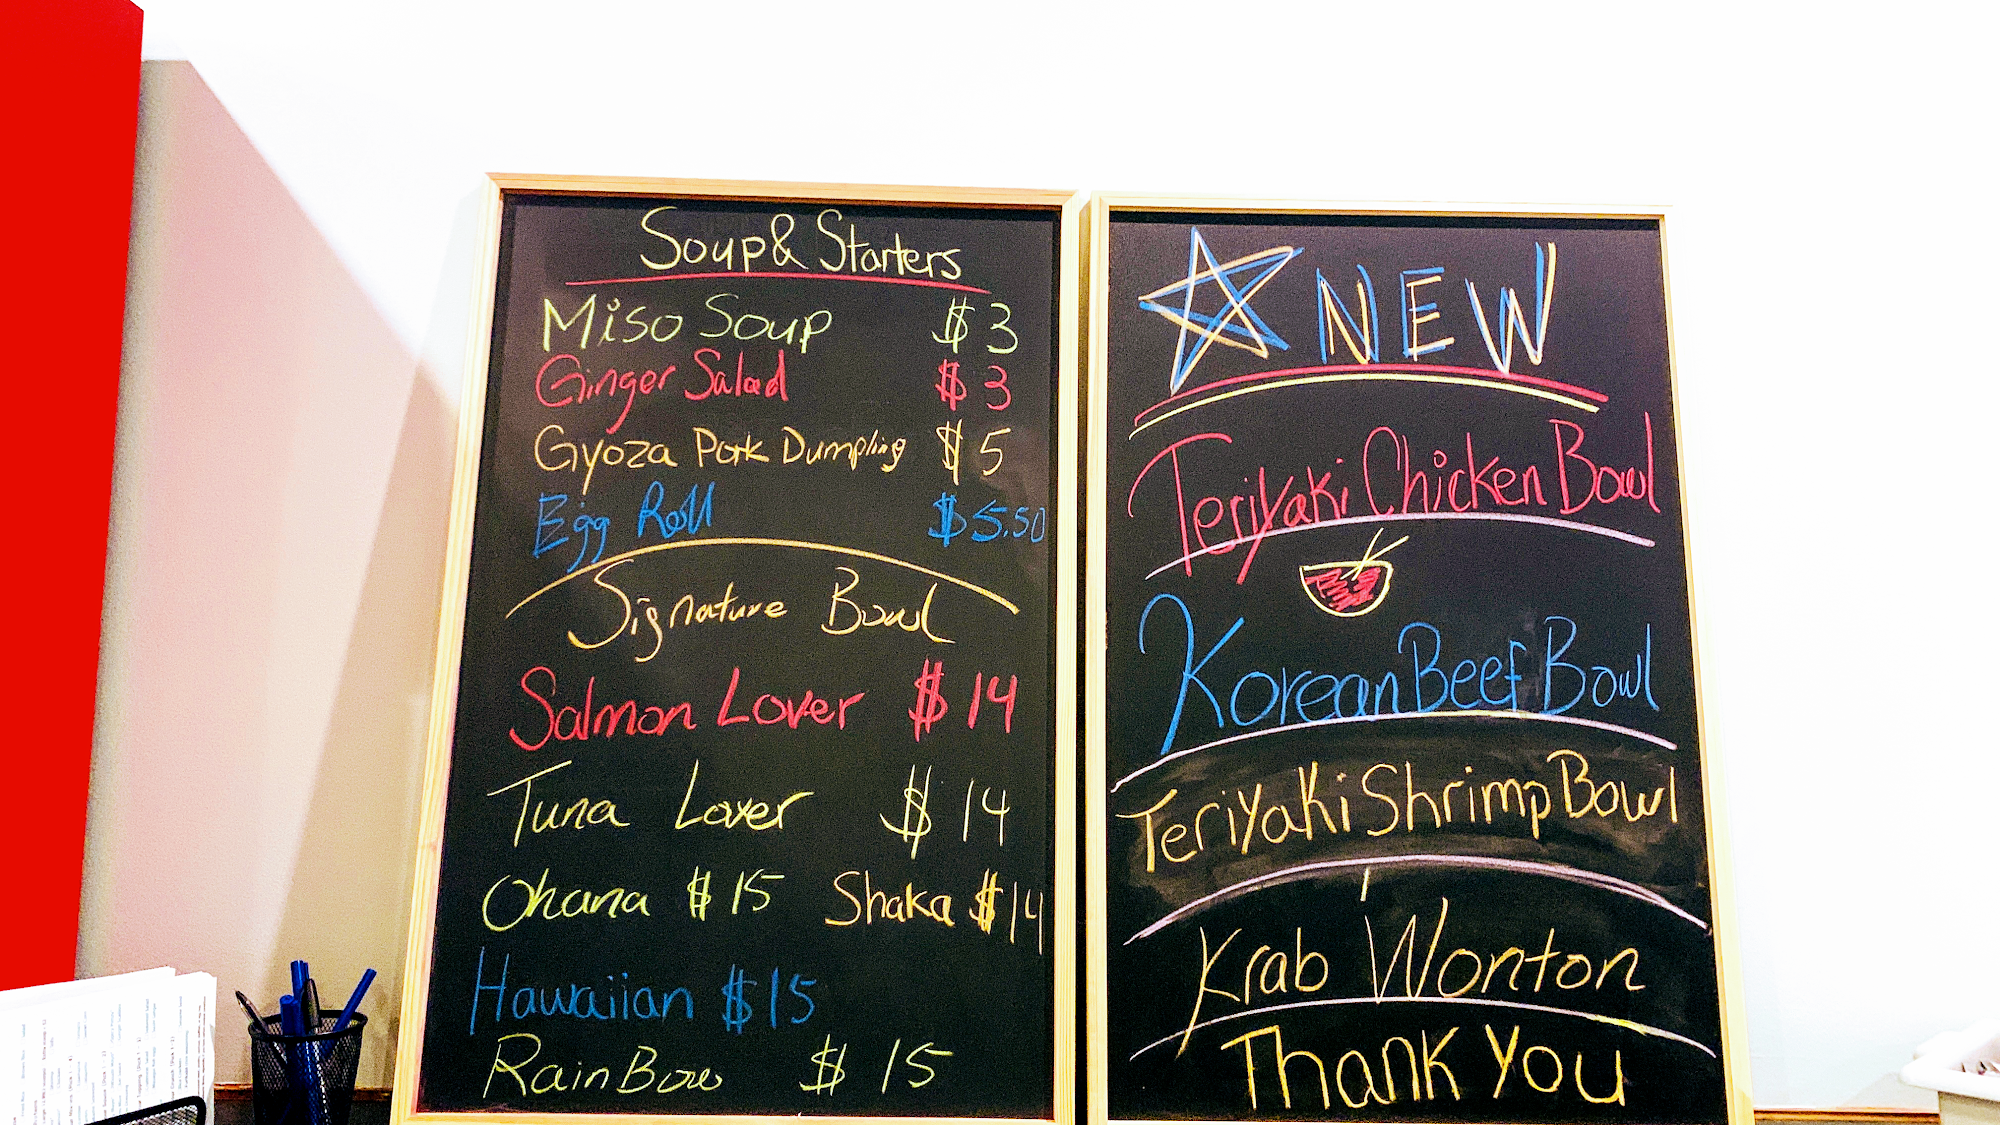 Soup & Starters
Miso Soup $3
Ginger Salad $3
Gyoza Pork Dumpling $5
Egg Roll $5.50
Signature Bowl
Salmon Lover $14
Tuna Lover $14
Ohana $15 Shaka $14
Hawaiian $15
RainBow $15
NEW
Teriyaki Chicken Bowl
Korean Beef Bowl
Teriyaki Shrimp Bowl
Krab Wonton
Thank You